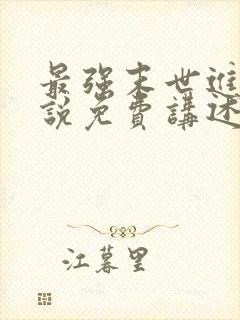 最強末世進
說免費講述
江暮里